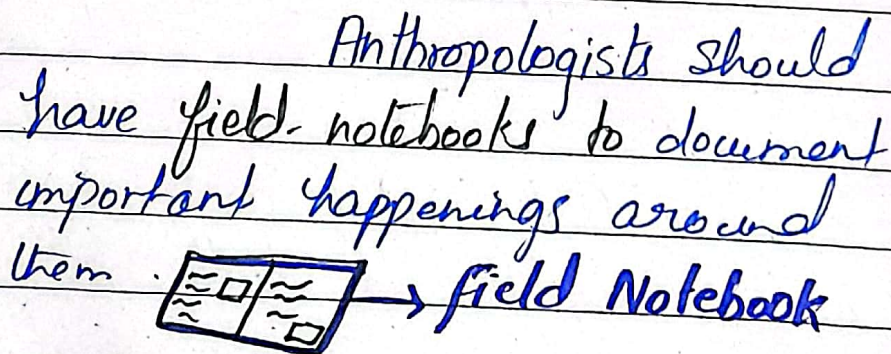 Anthropologists should
have field-notebooks to document
important happenings around
them. → field Notebook